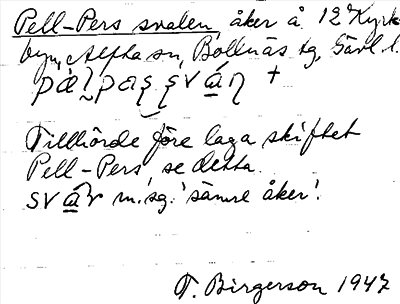 Pell-Pers svalen, åker å 12 Kyrk-
byn, Alfta sn, Bollnäs tg, Gävl. l.
Tillhörde före laga skiftet
Pell-Pers, se detta.
m. sg. 'sämre åker'.
T. Birgerson 1947